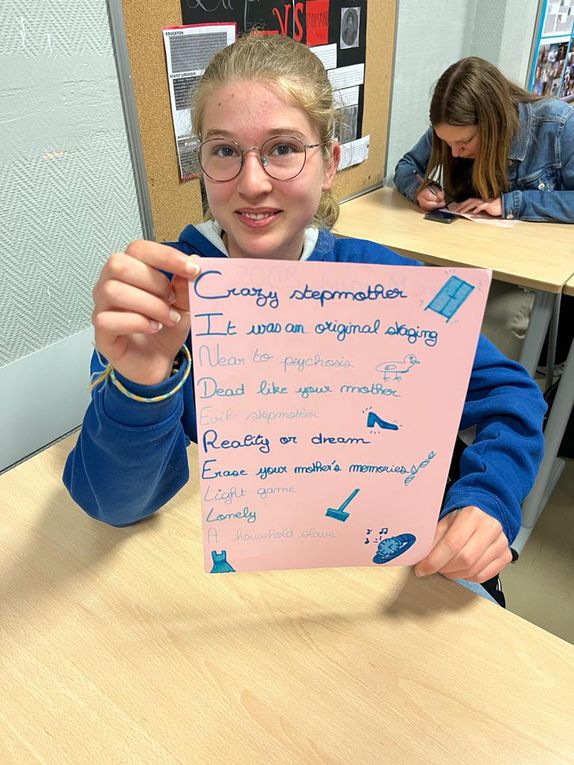 EDUCATION
VS
Crazy stepmother
It was an original staging
Near to psychosis
Dead like your mother
Evil stepmother
Reality or dream
Erase your mother's memories
Light game
Lonely
A household slave